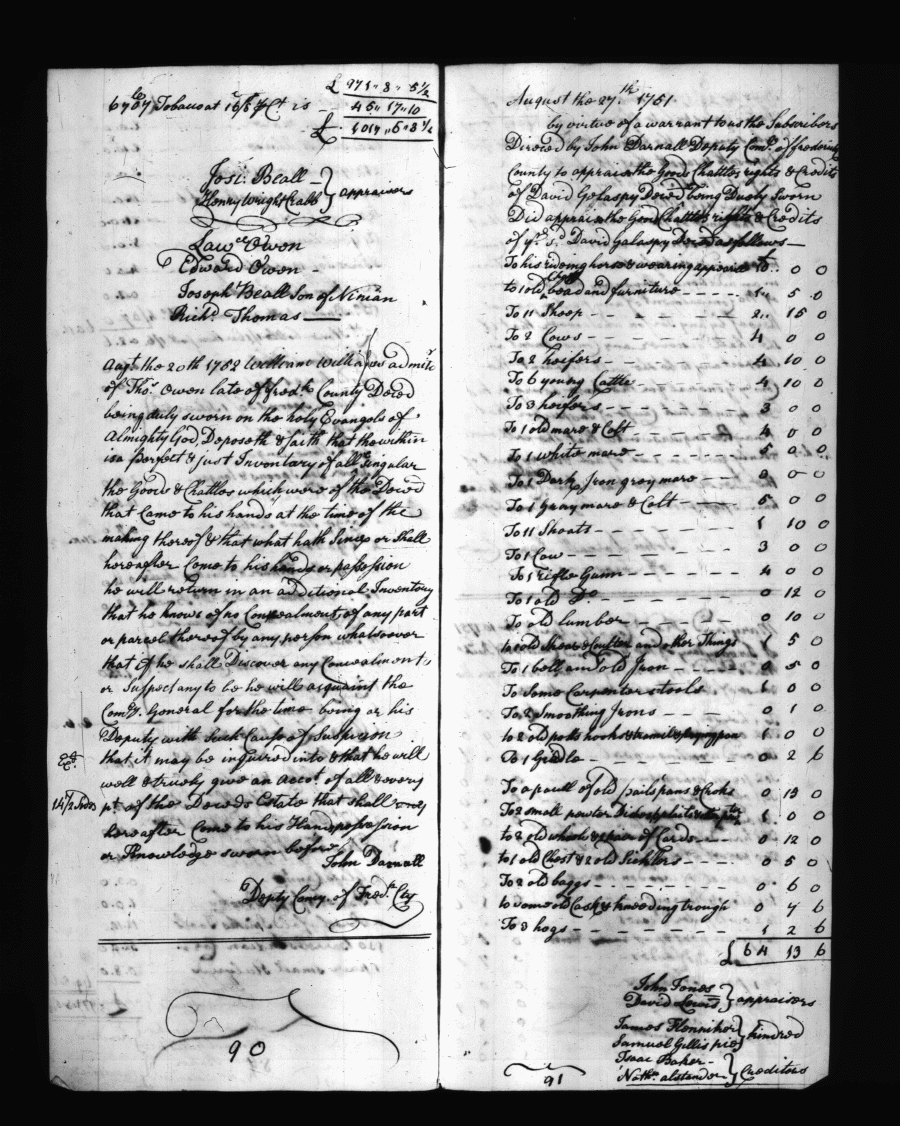 £ 971 " 8 " 5 1/2
6767 Tobacco at 15/5 p Ct is — 45 " 17 " 10
£
Josi: Beall
Henry Wright Crabb } appraisers
Lawce Owen
Edward Owen
Joseph Beall Son of Ninian
Richd Thomas
Augt the 20th 1752 William Williams admr
of Thos Owen late of Fredk County Deced
being duly sworn on the holy Evangels of
Almighty God, Deposeth & saith that the within
is a Perfect & just Inventory of all & Singular
the Goods & Chattles which were of the Deced
that Came to his hands at the time of the
making thereof & that what hath Since or Shall
hereafter Come to his hands or possession
he will return in an additional Inventory
that he knows of no Concealment of any part
or parcel thereof by any person whatsoever
that if he shall Discover any Concealment
or Suspect any to be he will acquaint the
Comy. General for the time being or his
Deputy with such Cause of Suspicion
that it may be inquired into & that he will
well & truely give an Acct of all & every
pt of the Deceds Estate that shall
hereafter Come to his Hands possession
or Knowledge sworn before
John Darnall
Depty Comy of Fredk Cty
Exd
24 1/2 Sides
90
August the 27th 1751
by virtue of a warrant to us the Subscribers
Directed by John Darnall Deputy Comy of frederick
County to appraise the Goods Chattles rights & Credits
of David Golaspy Deced being Duely Sworn
Did appraise the Goods Chattles rights & Credits
of ye sd David Galaspy Deced as follows
To his rideing horse & wearing apparel 0 0
to 1 old bead and furniture 1 5 0
To 11 Sheep 2 15 0
To 2 Cows 4 0 0
To 2 heifers 4 10 0
To 6 young Cattle 4 10 0
To 3 heifers 3 0 0
To 1 old mare & Colt 4 0 0
To 1 white mare 5 0 0
To 1 Dark Iron gray mare 8 0 0
To 1 Gray mare & Colt 5 0 0
To 11 Shoats 1 10 0
To 1 Cow 3 0 0
To 1 rifle Gunn 4 0 0
To 1 old Do 0 12 0
To old lumber 0 10 0
to old Shear & Coulter and other Things 1 5 0
To 1 bell and old Iron 0 5 0
To Some Carpenters tools 1 0 0
To 2 Smoothing Irons 0 1 0
to 2 old potts hooks & tramil & frying pan 1 0 0
To 1 Gridle 0 2 6
To a parcell of old pails pans & Crocks 0 13 0
To 2 small pewter Dishes plate & 1 0 0
to 2 old wheels & pair of Cards 0 12 0
to 1 old Chest & 2 old Sickles 0 5 0
To 2 old baggs 0 6 0
to some old Casks & kneeding trough 0 7 6
To 3 hogs 1 2 6
£ 64 13 6
John Jones
David Lewis } appraisers
James Flenniker
Samuel Gillispie } kindred
Isaac Baker
Nathl alexander } Creditors
91